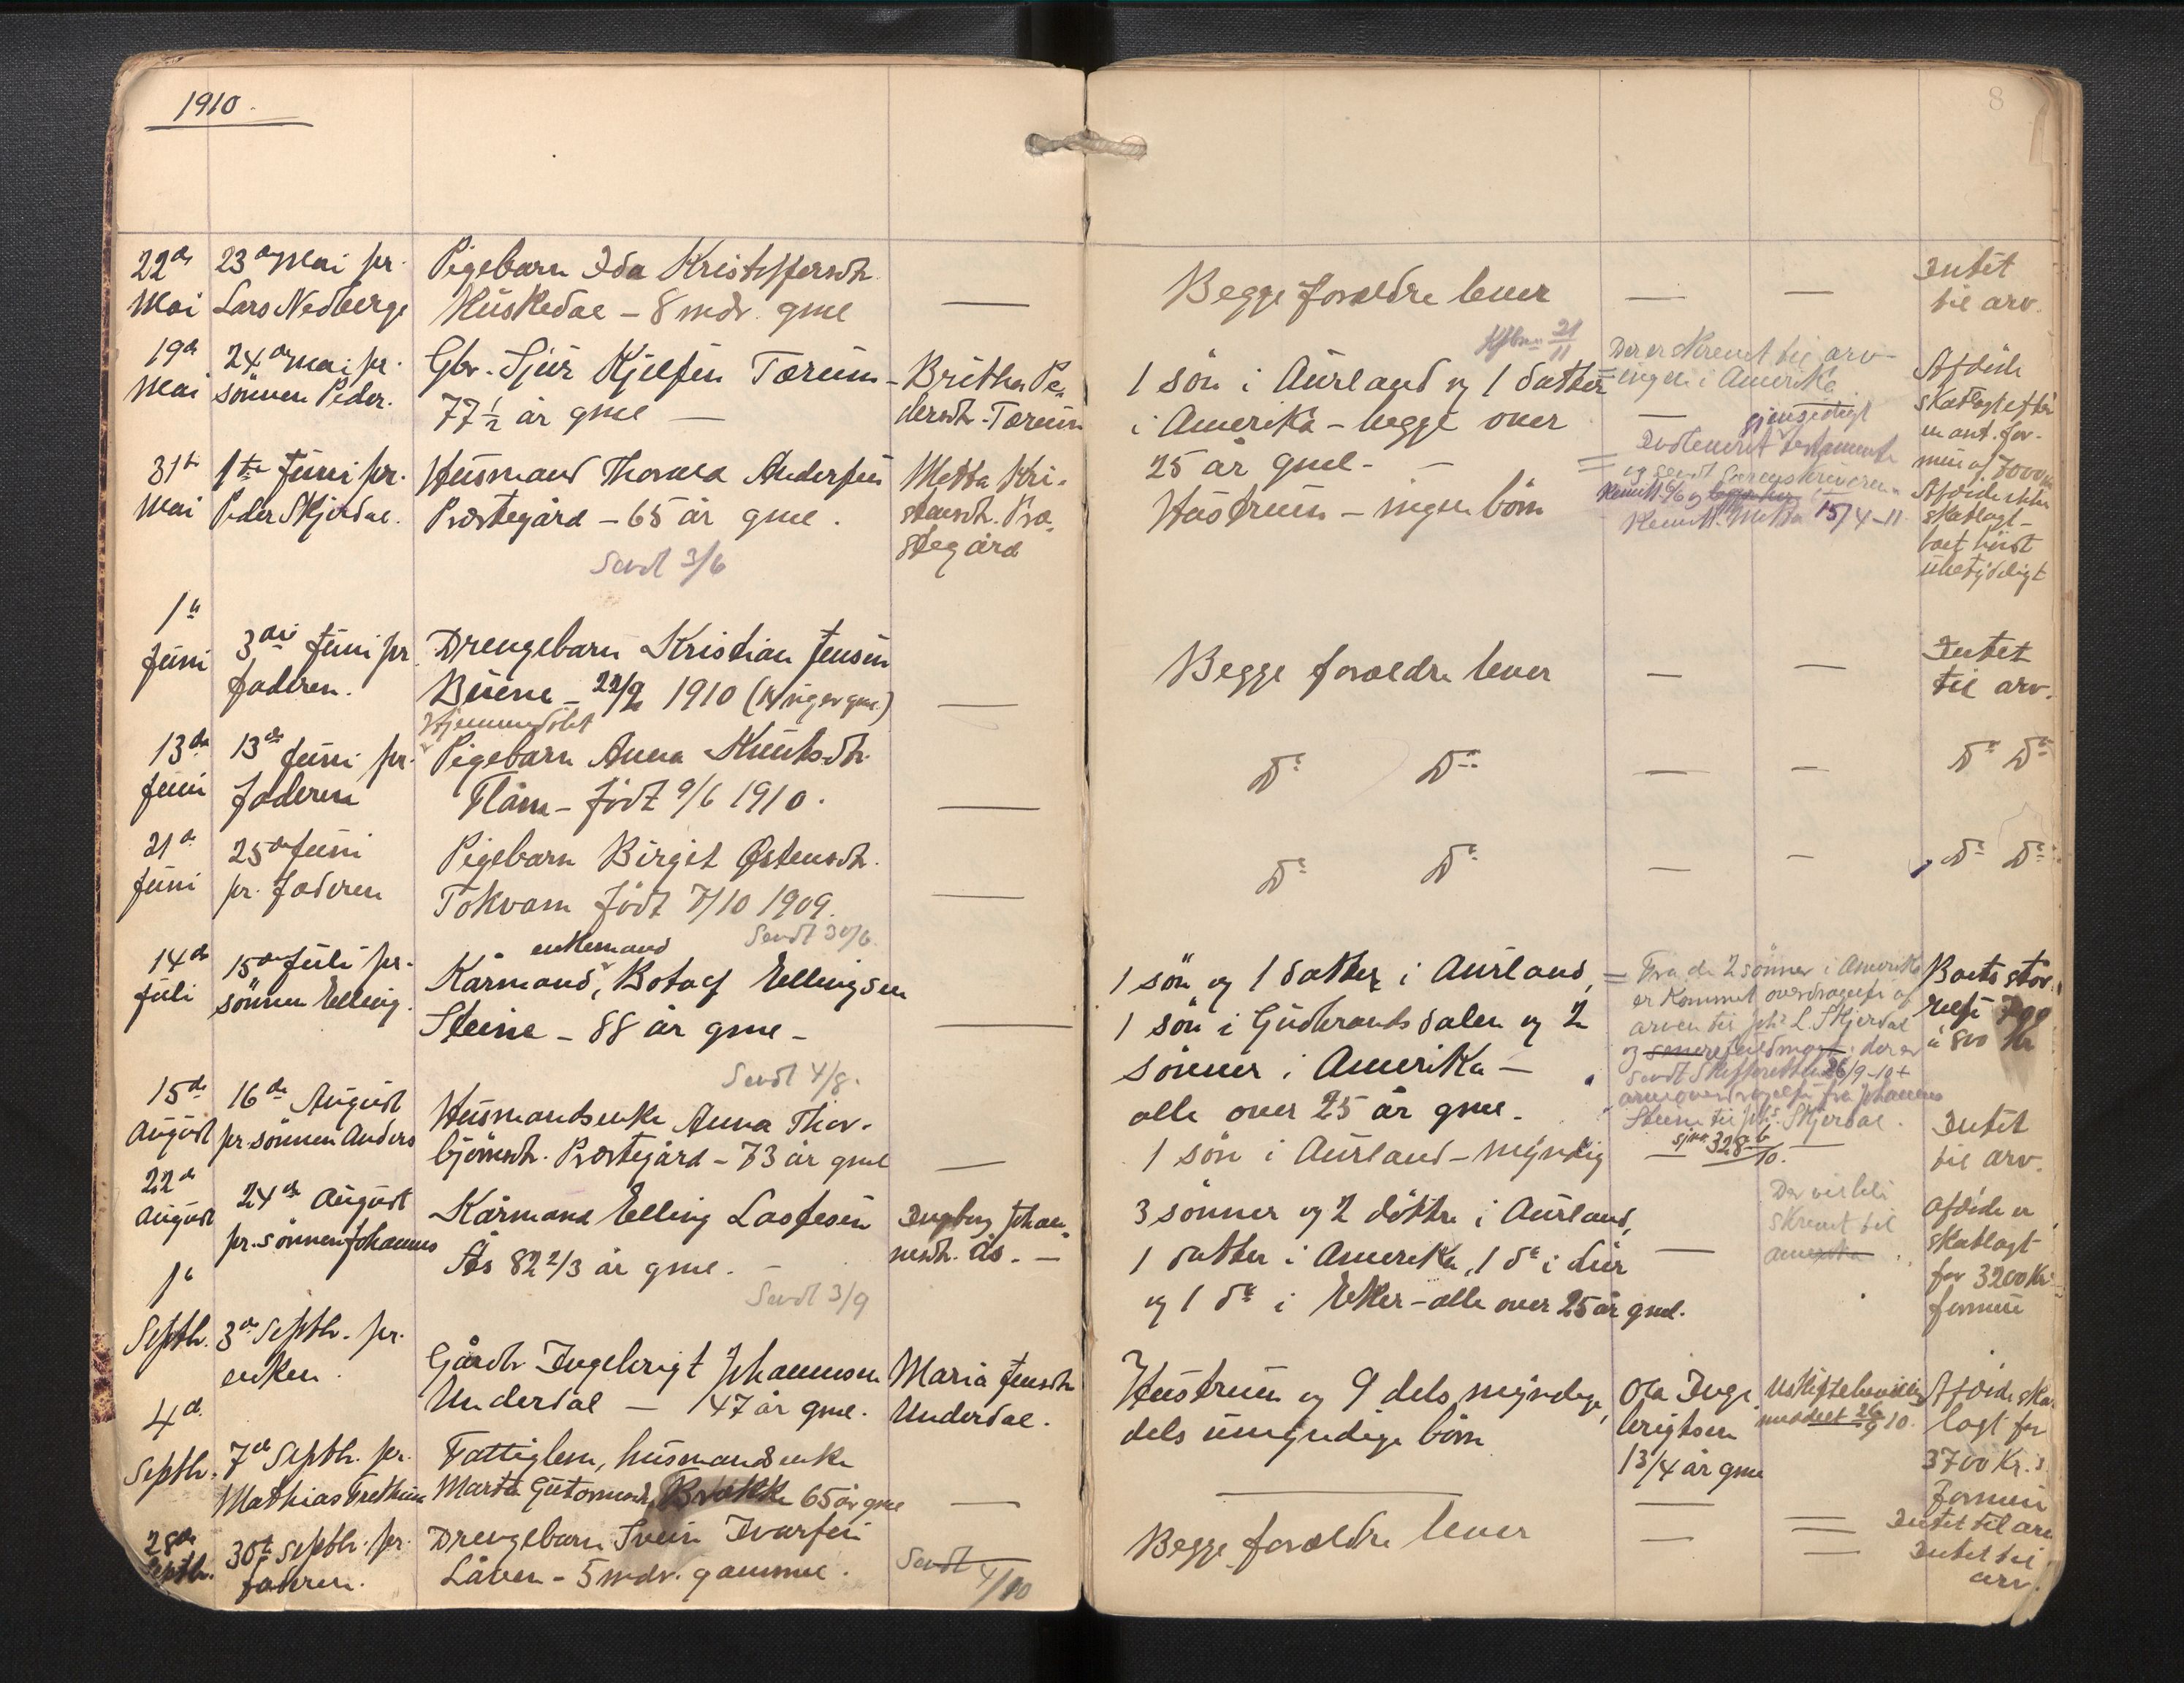 1910.
8
22de
Mai
23de Mai pr.
Lars Nedberge
Pigebarn Ida Kristoffersdtr.
Huskedal – 8 mdr. gml
Begge forældre lever
Intet
til arv.
19de
Mai
24de Mai pr.
sønnen Peder.
Gbr. Sjur Kjelsen Tærum –
77 ½ år gml —
Britha Pe-
dersdtr. Tærum
21/11
1 sön i Aurland og 1 datter
i Amerika – begge over
25 år gml. –
Der er skrevet til arv-
ingen i Amerika
Afdöde
skatlagt efter
en ant. for-
mue af 7000
31te
Mai
1ste Juni pr.
Peder Skjerdal.
Husmand Thomas Andersen
Prestegård – 65 år gml.
Sendt 3/6
Metta Kri-
stensdtr. Præ-
stegård
Hustruen – ingen börn
gjensidigt
Indleveret testamente
og sendt Sorenskriveren
15/4-11
Afdöde ikke
skatlagt –
boet höist
ubetydeligt
1ste
Juni
3die Juni pr
faderen.
Drengebarn Kristian Jensen
1910 (14 uger gml.)
Begge forældre lever
Intet
til arv.
13de
Juni
13de Juni pr.
faderen
Hjemmedöbt
Pigebarn Anna Knutsdtr.
Flåm – födt 9/6 1910.
Do Do
Do Do
21de
Juni
25de Juni
pr. faderen
Pigebarn Birgit Østensdtr.
Tokvam födt 7/10 1909.
Sendt 30/6.
Do Do
Do Do
14de
Juli
15de Juli pr.
sönnen Elling.
enkemand
Kårmand, Botolf Ellingsen
Steine – 88 år gml –
Sendt 4/8.
1 sön og 1 datter i Aurland,
1 sön i Gudbrandsdalen og 2
sönner i Amerika –
alle over 25 år gml.
Fra de 2 sönner i Amerika
er kommet overdragelse af
arven til Johs L. Skjerdal
og senere fuldmagt; der er
sendt Skifteretten 26/9-10 +
arveoverdragelse fra Johannes
Steine til Johs. Skjerdal.
328
Boets stör-
relse 700
à 800 Kr
15de
August
16de August
pr. sönnen Anders
Husmandsenke Anna Thor-
björnsdtr. Prestegård – 73 år gml
1 sön i Aurland – myndig
Intet
til arv.
22de
August
24de August
pr. sönnen Johannes
Kårmand Elling Lassesen
Ås 82 2/3 år gml. –
Sendt 3/9
Ingborg Johan-
nesdtr. Ås. –
3 sönner og 2 döttre i Aurland,
1 datter i Amerika, 1 do i Lier
og 1 do i Eker – alle over 25 år gml.
Der vil bli
skrevet til
Amerika
Afdöde er
skatlagt
for 3200 Kr
formue
1ste
Septbr.
3die Septbr. pr.
enken.
Gårdbr Ingebrigt Johannesen
Underdal — 47 år gml.
Maria Jensdtr
Underdal.
Hustruen og 9 dels myndige,
dels umyndige börn
Ola Inge-
brigtsen
13/4 år gml
Uskiftebevilling
meddelt 26/9 10.
Afdöde skat-
lagt for
3700 Kr.s
formue
4de
Septbr.
7de Septbr. pr.
Mathias Fretheim
Fattiglem, husmandsenke
Marta Gutormsdtr. Brekke 65 år gml
Intet til arv
28de
Septbr.
30te Septbr. pr.
faderen.
Drengebarn Svein Ivarsen
Låven – 5 mdr. gammel.
Sendt 4/10
Begge forældre lever
Intet til
arv.